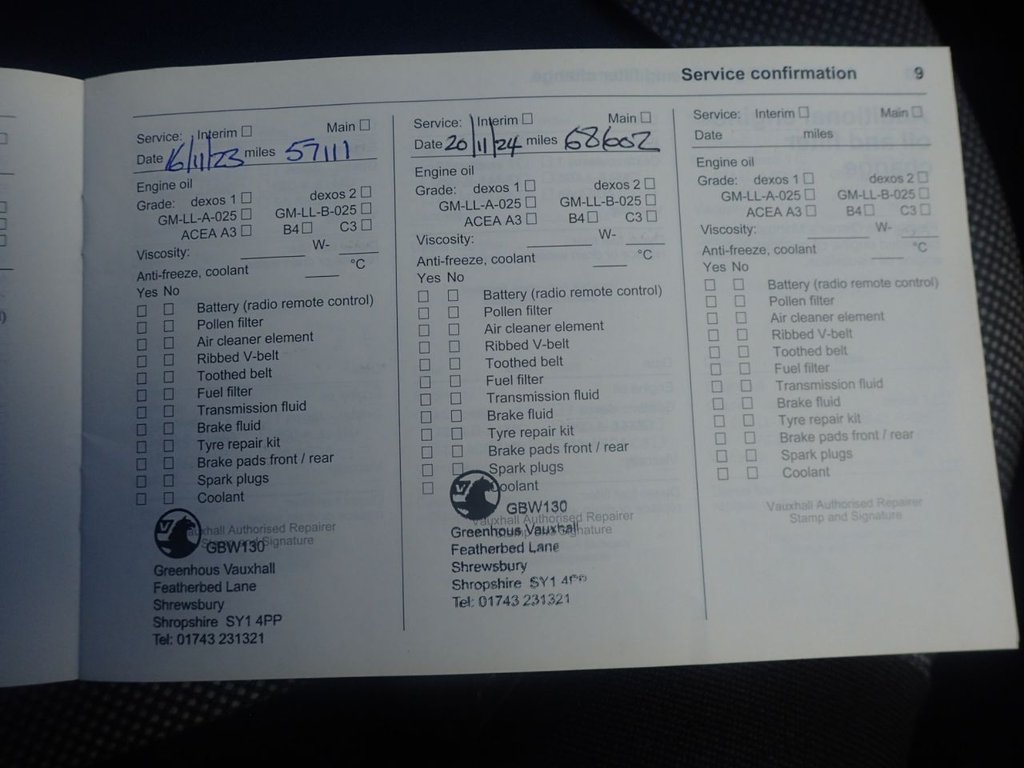 Service confirmation 9
Service: Interim ☐ Main ☐
Date 16/11/23 miles 57111
Engine oil
Grade: dexos 1 ☐ dexos 2 ☐
GM-LL-A-025 ☐ GM-LL-B-025 ☐
ACEA A3 ☐ B4 ☐ C3 ☐
Viscosity: ______ W- ____
Anti-freeze, coolant ____ °C
Yes No
☐ ☐ Battery (radio remote control)
☐ ☐ Pollen filter
☐ ☐ Air cleaner element
☐ ☐ Ribbed V-belt
☐ ☐ Toothed belt
☐ ☐ Fuel filter
☐ ☐ Transmission fluid
☐ ☐ Brake fluid
☐ ☐ Tyre repair kit
☐ ☐ Brake pads front / rear
☐ ☐ Spark plugs
☐ ☐ Coolant
Authorised Repairer
GBW130 Signature
Greenhous Vauxhall
Featherbed Lane
Shrewsbury
Shropshire SY1 4PP
Tel: 01743 231321
Service: Interim ☐ Main ☐
Date 20/11/24 miles 68602
Engine oil
Grade: dexos 1 ☐ dexos 2 ☐
GM-LL-A-025 ☐ GM-LL-B-025 ☐
ACEA A3 ☐ B4 ☐ C3 ☐
Viscosity: ______ W- ____
Anti-freeze, coolant ____ °C
Yes No
☐ ☐ Battery (radio remote control)
☐ ☐ Pollen filter
☐ ☐ Air cleaner element
☐ ☐ Ribbed V-belt
☐ ☐ Toothed belt
☐ ☐ Fuel filter
☐ ☐ Transmission fluid
☐ ☐ Brake fluid
☐ ☐ Tyre repair kit
☐ ☐ Brake pads front / rear
☐ ☐ Spark plugs
☐ Coolant
GBW130
Vauxhall Authorised Repairer
Greenhous Vauxhall
Signature
Featherbed Lane
Shrewsbury
Shropshire SY1 4PP
Tel: 01743 231321
Service: Interim ☐ Main ☐
Date miles
Engine oil
Grade: dexos 1 ☐ dexos 2 ☐
GM-LL-A-025 ☐ GM-LL-B-025 ☐
ACEA A3 ☐ B4 ☐ C3 ☐
Viscosity: ______ W- ____
Anti-freeze, coolant ____ °C
Yes No
☐ ☐ Battery (radio remote control)
☐ ☐ Pollen filter
☐ ☐ Air cleaner element
☐ ☐ Ribbed V-belt
☐ ☐ Toothed belt
☐ ☐ Fuel filter
☐ ☐ Transmission fluid
☐ ☐ Brake fluid
☐ ☐ Tyre repair kit
☐ ☐ Brake pads front / rear
☐ ☐ Spark plugs
☐ ☐ Coolant
Vauxhall Authorised Repairer
Stamp and Signature